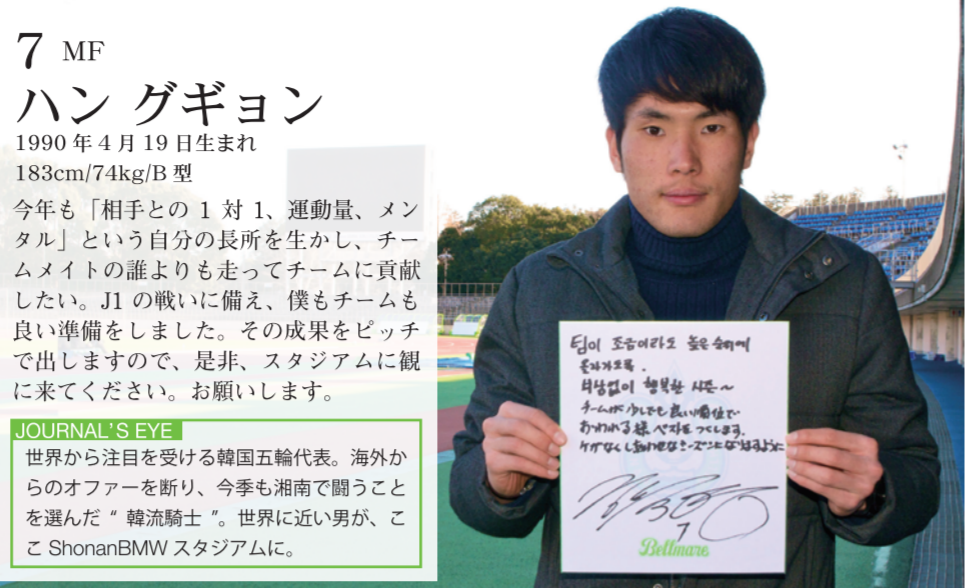 7 MF
ハン グギョン
1990 年 4 月 19 日生まれ
183cm/74kg/B 型
今年も「相手との 1 対 1、運動量、メン
タル」という自分の長所を生かし、チー
ムメイトの誰よりも走ってチームに貢献
したい。J1 の戦いに備え、僕もチームも
良い準備をしました。その成果をピッチ
で出しますので、是非、スタジアムに観
に来てください。お願いします。
JOURNAL'S EYE
世界から注目を受ける韓国五輪代表。海外か
らのオファーを断り、今季も湘南で闘うこと
を選んだ“ 韓流騎士 ”。世界に近い男が、こ
こ ShonanBMW スタジアムに。
팀이 조금이라도 높은 순위에
올라가도록.
부상없이 행복한 시즌~
チームが少しでも良い順位で
おわれる様 ベストをつくします。
ケガなくしあわせなシーズンに
7
Bellmare